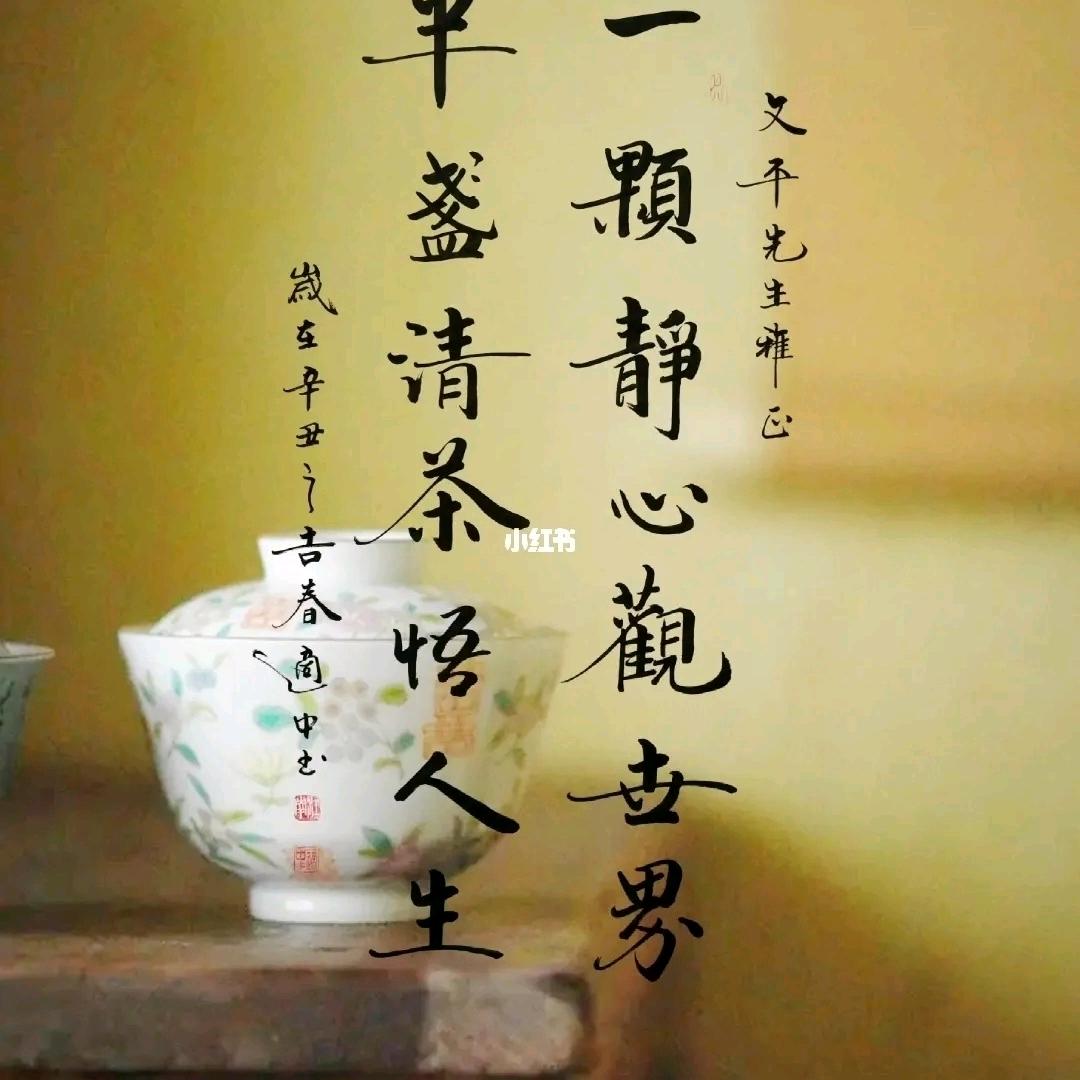 文平先生雅正
一顆靜心觀世界
半盞清茶悟人生
歲在辛丑之吉春適中书
小红书